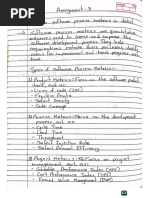 Assignment: 3
software process metrics in detail
→ Software process metrics are quantitative
measures used to assess and improve the
software development process. They help
organizations evaluate their performance, identify
areas for improvement and track progress over
time.
Types of Software Process Metrics:
1) Product Metrics: Focus on the software product
itself, such as:
- Lines of Code (LOC)
- Function Points
- Defect Density
- Code Coverage
2) Process Metrics: Focus on the development
process such as:
- Cycle Time
- Lead Time
- Throughput
- Defect Injection Rate
- Defect Removal Efficiency
3) Project Metrics: Focus on project
management such as:
- Schedule Performance Index (SPI)
- Cost Performance Index (CPI)
- Earned Value Management (EVM)